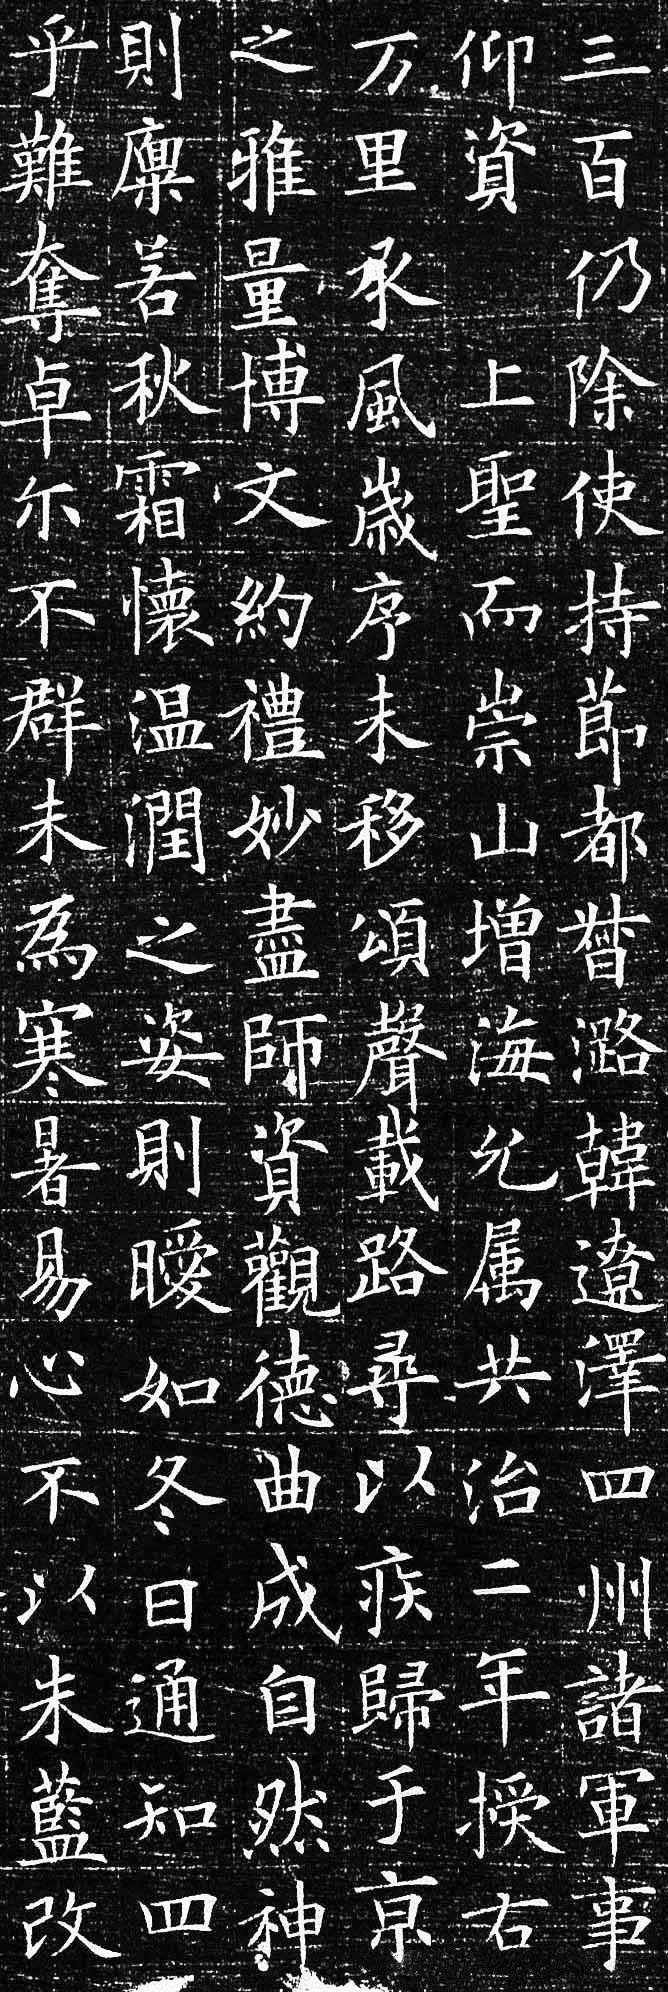 三百仍除使持莭都督潞韓遼澤四州諸軍事
仰資上聖而崇山增海允属共治二年授右
万里承風歳序未移頌聲載路尋以疾歸于京
之雅量博文約禮妙盡師資觀德曲成自然神
則廩若秋霜懷温潤之姿則曖如冬日通知四
乎難奪卓尓不群未為寒暑易心不以朱藍改